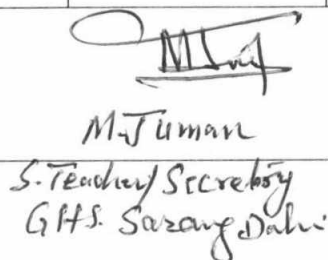 M. Juman
S. Teacher/ Secretory
GHS. Sarang Dahi